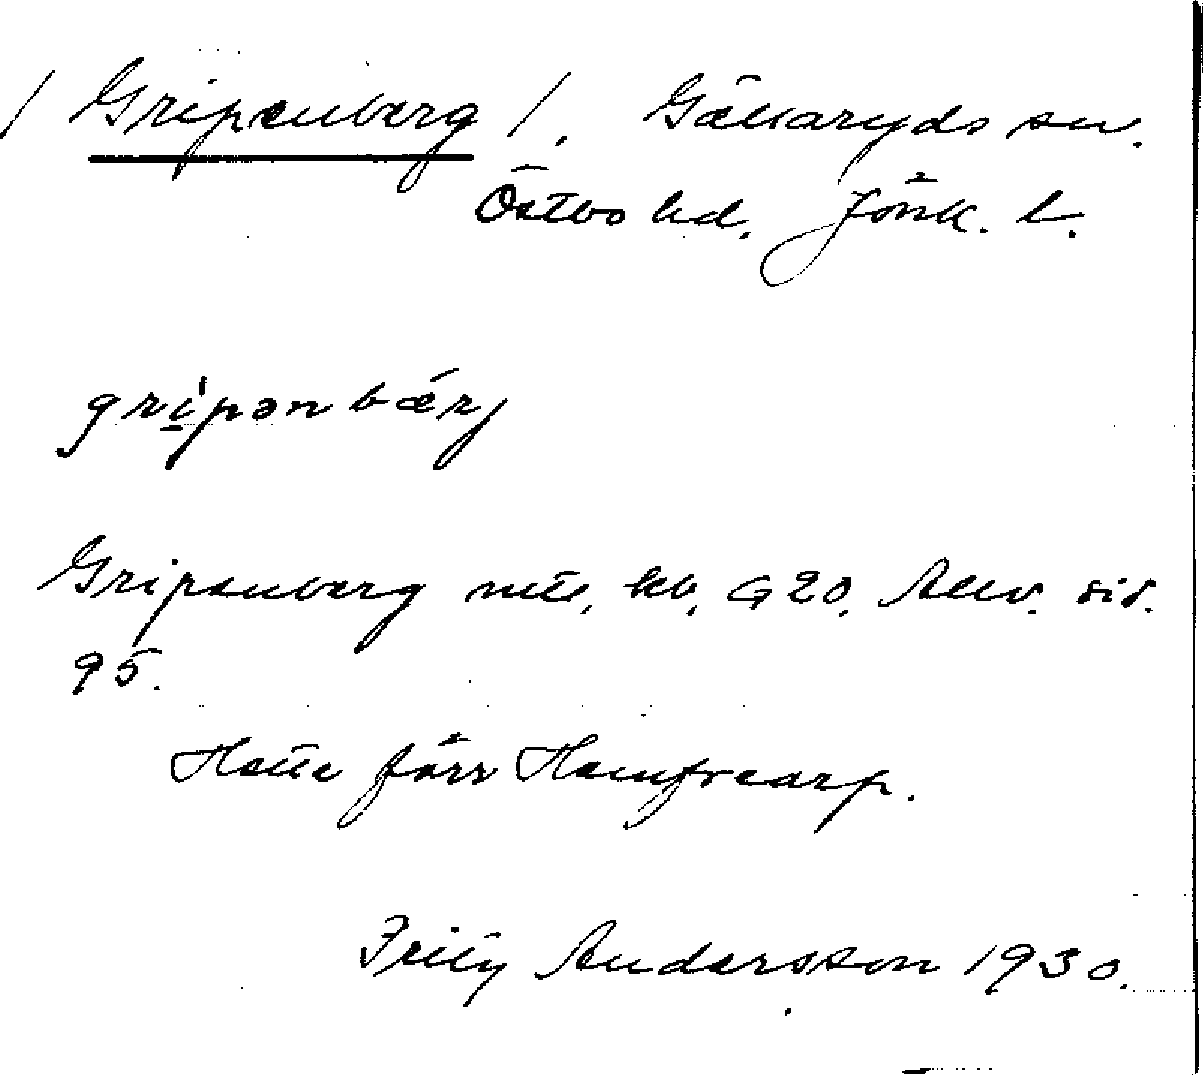 / Gripenberg /. Gällaryds sn.
Östbo hd. Jönk. l.
gripənbærj
Gripenberg mtl. kb. G 20. Allv. sid.
95.
Hette förr Hamftearp.
Fritz Andersson 1930.